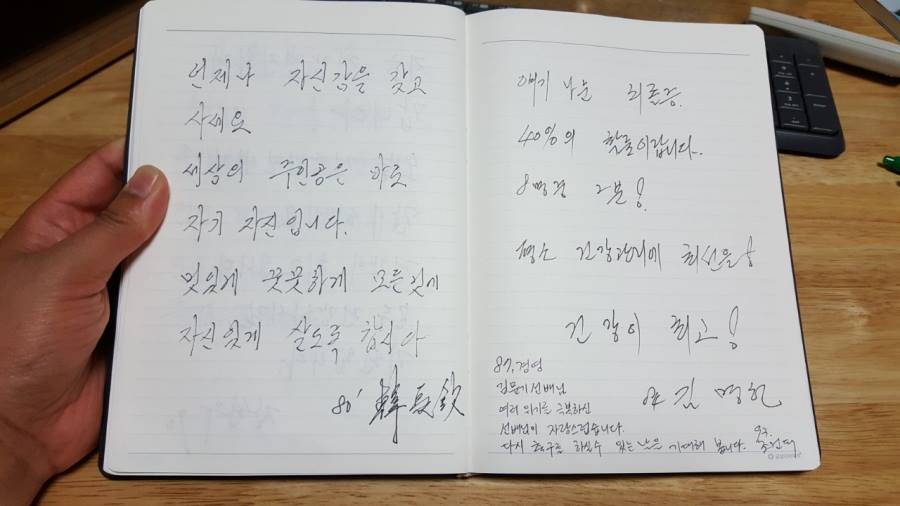 언제나 자신감을 갖고
사세요
세상의 주인공은 바로
자기 자신입니다.
멋있게 꿋꿋하게 모든것에
자신있게 살도록 합시다
80' 韓長欽
얘기 나눈
40%의 확률이랍니다.
8명중 2분!
평소 건강관리에 최선을!
건강이 최고!
84 김명헌
87. 경영
김문기 선배님
여러 위기를 극복하신
선배님이 자랑스럽습니다.
다시 축구를 하실수 있는 날을 기대해 봅니다. 93.